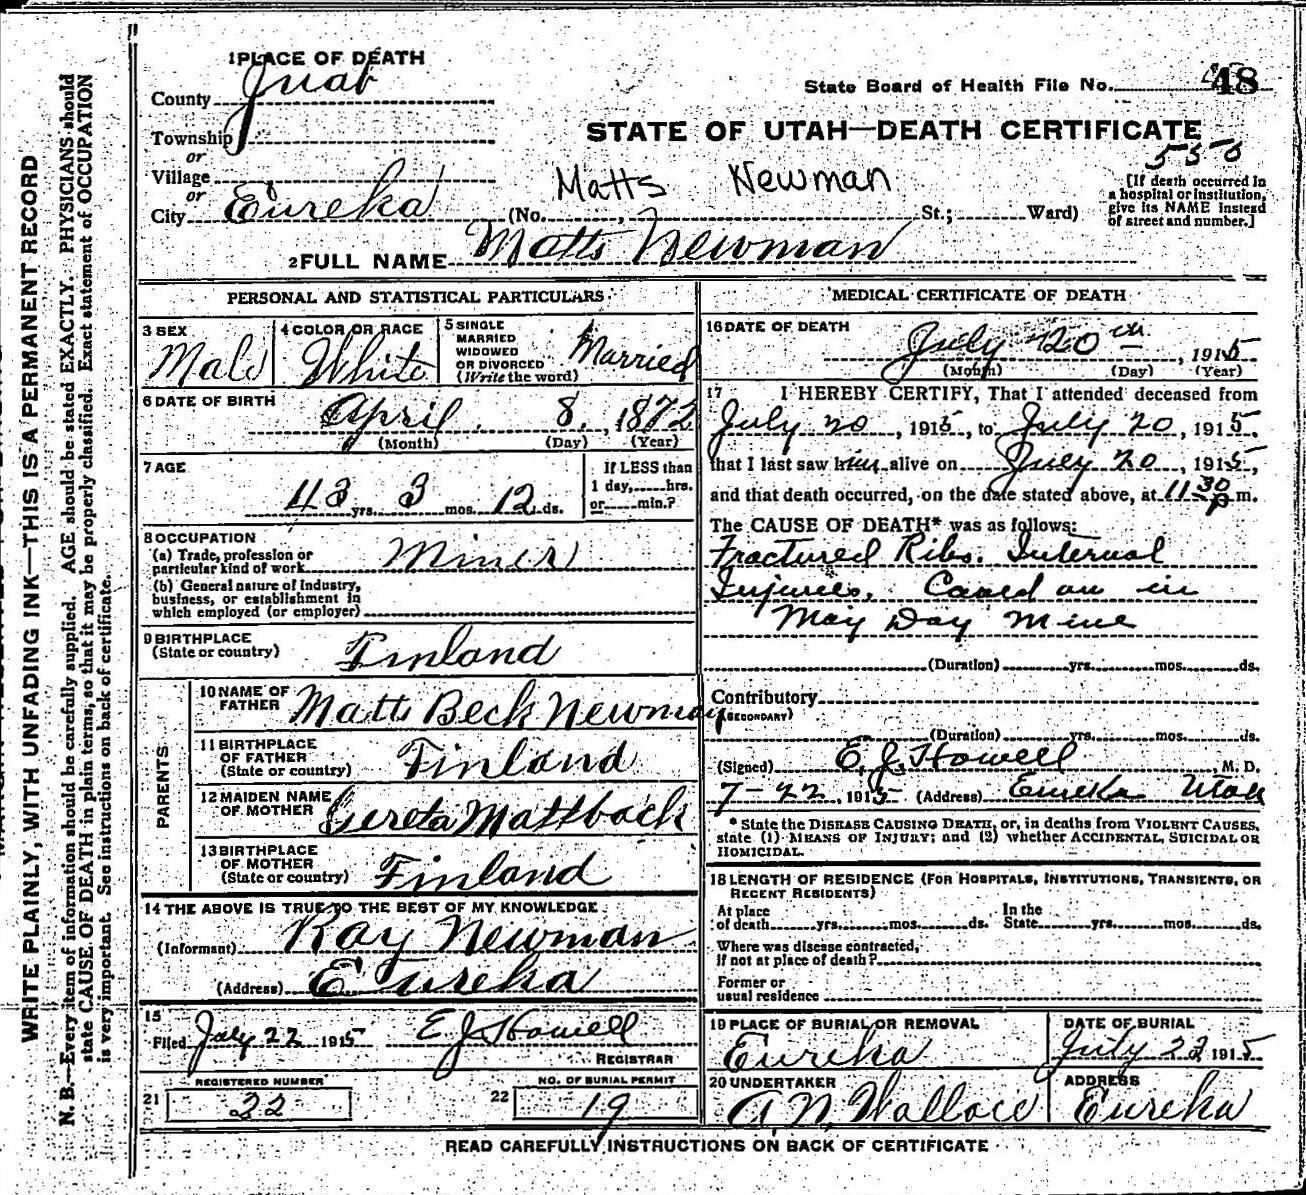 1 PLACE OF DEATH
County Juab
State Board of Health File No. 48
Township
or
Village
or
City Eureka
STATE OF UTAH—DEATH CERTIFICATE
550
Matts Newman
(No. , St.; Ward)
[If death occurred in
a hospital or institution,
give its NAME instead
of street and number.]
2 FULL NAME Matts Newman
PERSONAL AND STATISTICAL PARTICULARS
3 SEX
Male
4 COLOR OR RACE
White
5 SINGLE
MARRIED
WIDOWED
OR DIVORCED
(Write the word)
Married
6 DATE OF BIRTH
April 8, 1872
(Month) (Day) (Year)
7 AGE
43 yrs. 3 mos. 12 ds.
If LESS than
1 day, hrs.
or min.?
8 OCCUPATION
(a) Trade, profession or
particular kind of work Miner
(b) General nature of industry,
business, or establishment in
which employed (or employer)
9 BIRTHPLACE
(State or country) Finland
PARENTS
10 NAME OF
FATHER Matts Beck Newman
11 BIRTHPLACE
OF FATHER
(State or country) Finland
12 MAIDEN NAME
OF MOTHER Gereta Mattback
13 BIRTHPLACE
OF MOTHER
(State or country) Finland
14 THE ABOVE IS TRUE TO THE BEST OF MY KNOWLEDGE
(Informant) Ray Newman
(Address) Eureka
15
Filed July 22 1915 E J Howell
REGISTRAR
REGISTERED NUMBER
21 22
NO. OF BURIAL PERMIT
22 19
MEDICAL CERTIFICATE OF DEATH
16 DATE OF DEATH
July 20th, 1915
(Month) (Day) (Year)
17 I HEREBY CERTIFY, That I attended deceased from
July 20, 1915, to July 20, 1915,
that I last saw him alive on July 20, 1915,
and that death occurred, on the date stated above, at 11 30 p m.
The CAUSE OF DEATH* was as follows:
Fractured Ribs. Internal
Injuries. Caved on in
May Day Mine
(Duration) yrs. mos. ds.
Contributory
(SECONDARY)
(Duration) yrs. mos. ds.
(Signed) E. J. Howell, M. D.
7-22, 1915 (Address) Eureka Utah
* State the DISEASE CAUSING DEATH, or, in deaths from VIOLENT CAUSES,
state (1) MEANS OF INJURY; and (2) whether ACCIDENTAL, SUICIDAL OR
HOMICIDAL.
18 LENGTH OF RESIDENCE (FOR HOSPITALS, INSTITUTIONS, TRANSIENTS, OR
RECENT RESIDENTS)
At place
of death yrs. mos. ds.
In the
State yrs. mos. ds.
Where was disease contracted,
If not at place of death?
Former or
usual residence
19 PLACE OF BURIAL OR REMOVAL
Eureka
DATE OF BURIAL
July 23 1915
20 UNDERTAKER
A. N. Wallace
ADDRESS
Eureka
READ CAREFULLY INSTRUCTIONS ON BACK OF CERTIFICATE
WRITE PLAINLY, WITH UNFADING INK—THIS IS A PERMANENT RECORD
N. B.—Every item of information should be carefully supplied. AGE should be stated EXACTLY. PHYSICIANS should
state CAUSE OF DEATH in plain terms, so that it may be properly classified. Exact statement of OCCUPATION
is very important. See instructions on back of certificate.